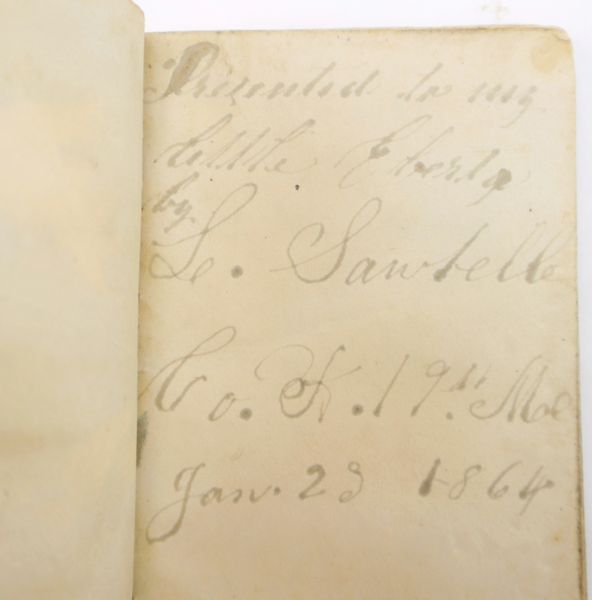 Presented to my
little Eberta
by
L. Sawtelle
Co. K. 19th Me
Jan. 23 1864